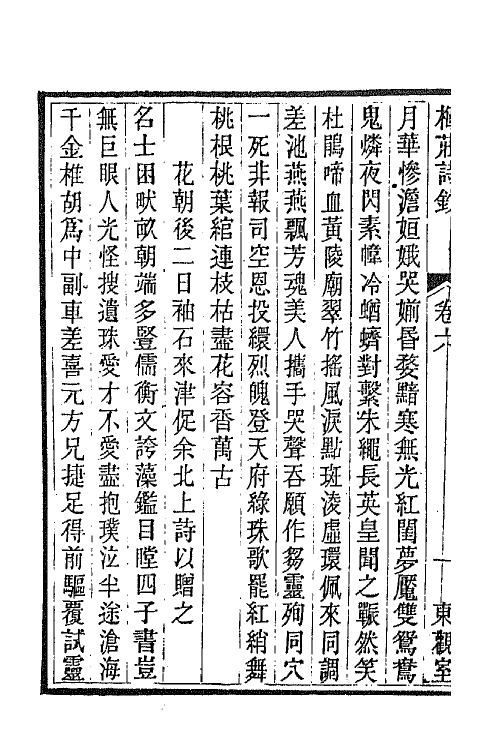 詩錄 卷六 東觀室
月華慘澹姮娥哭婻昏婺黯寒無光紅閨夢魘雙鴛鴦
鬼燐夜閃素幃冷蝤蠐對繫朱繩長英皇聞之囅然笑
杜鵑啼血黃陵廟翠竹搖風淚點斑淩虛環佩來同調
差池燕燕飄芳魂美人攜手哭聲吞願作芻靈殉同穴
一死非報司空恩投繯烈魄登天府綠珠歌罷紅綃舞
桃根桃葉綰連枝枯盡花容香萬古
花朝後二日袖石來津促余北上詩以贈之
名士困畎畝朝端多豎儒衡文誇藻鑑目瞠四子書豈
無巨眼人光怪搜遺珠愛才不愛盡抱璞泣半途滄海
千金椎胡為中副車差喜元方兄捷足得前驅覆試靈